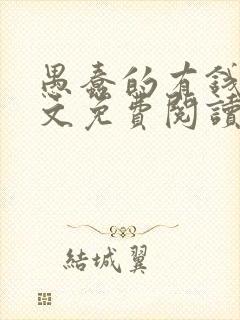 愚蠢的有錢
文免費閱讀
結城翼